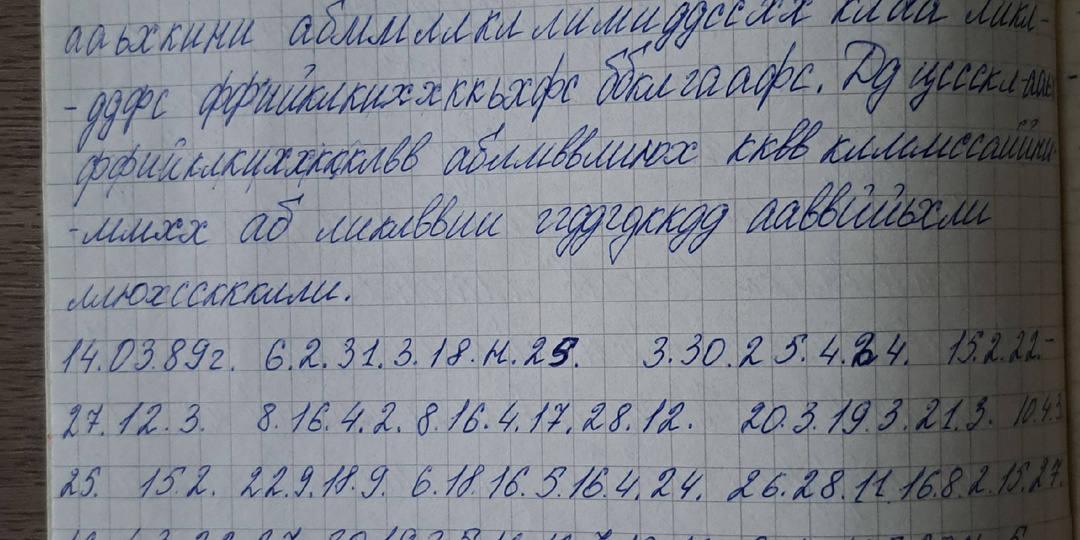 ааьхкини абммллкл лимиддссхх клаа ликл-
-ддфс ффийклкихххкьхфс ббклгаафс. Дд цссскл-ааь
ффийклкиххкцклвв аблмввлиюх кквв килмссаййни-
-ммхх аб ликлввии ггддгдккдд ааввййьхли
ллюхсскккили.
14.03.89г. 6.2.31.3.18.н.25. 3.30.25.4.24. 15.2.22.-
27.12.3. 8.16.4.2.8.16.4.17.28.12. 20.3.19.3.21.3. 10.4.3
25. 15.2. 22.9.18.9. 6.18.16.5.16.4.24. 26.28.11.16.8.2.15.27.